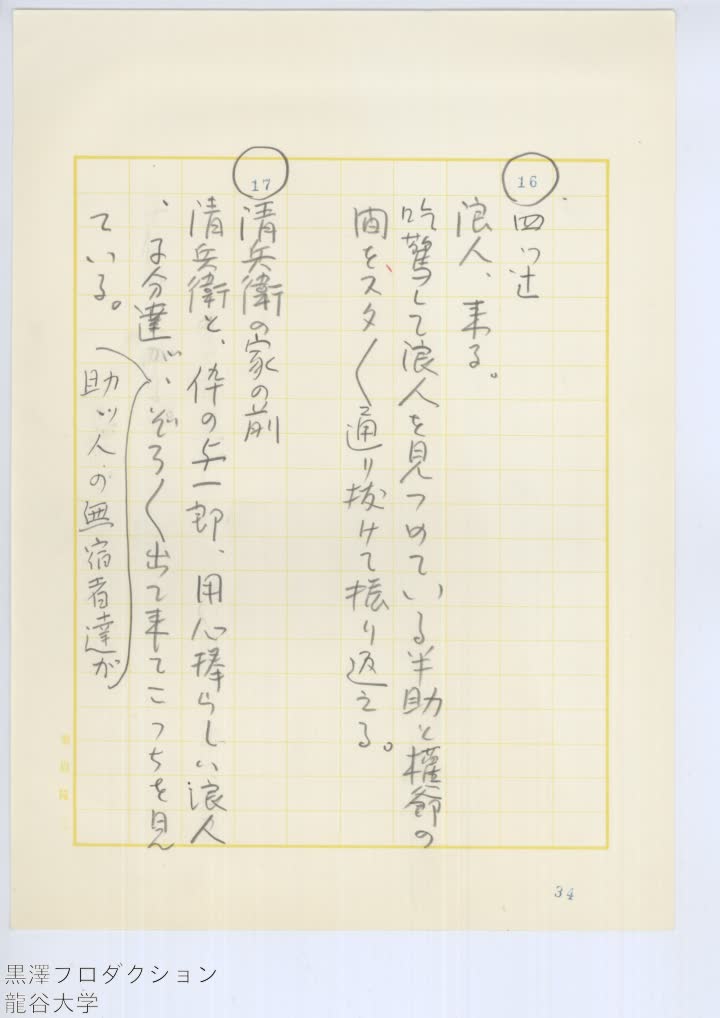 16
四つ辻
浪人、来る。
吃驚して浪人を見つめている半助と權爺の
間をスタ〱通り抜けて振り返える。
17
清兵衛の家の前
清兵衛と、伜の与一郎、用心棒らしい浪人
、子分達が、ぞろ〱出て来てこっちを見
ている。
助ッ人の無宿者達が
34
黒澤プロダクション
龍谷大学